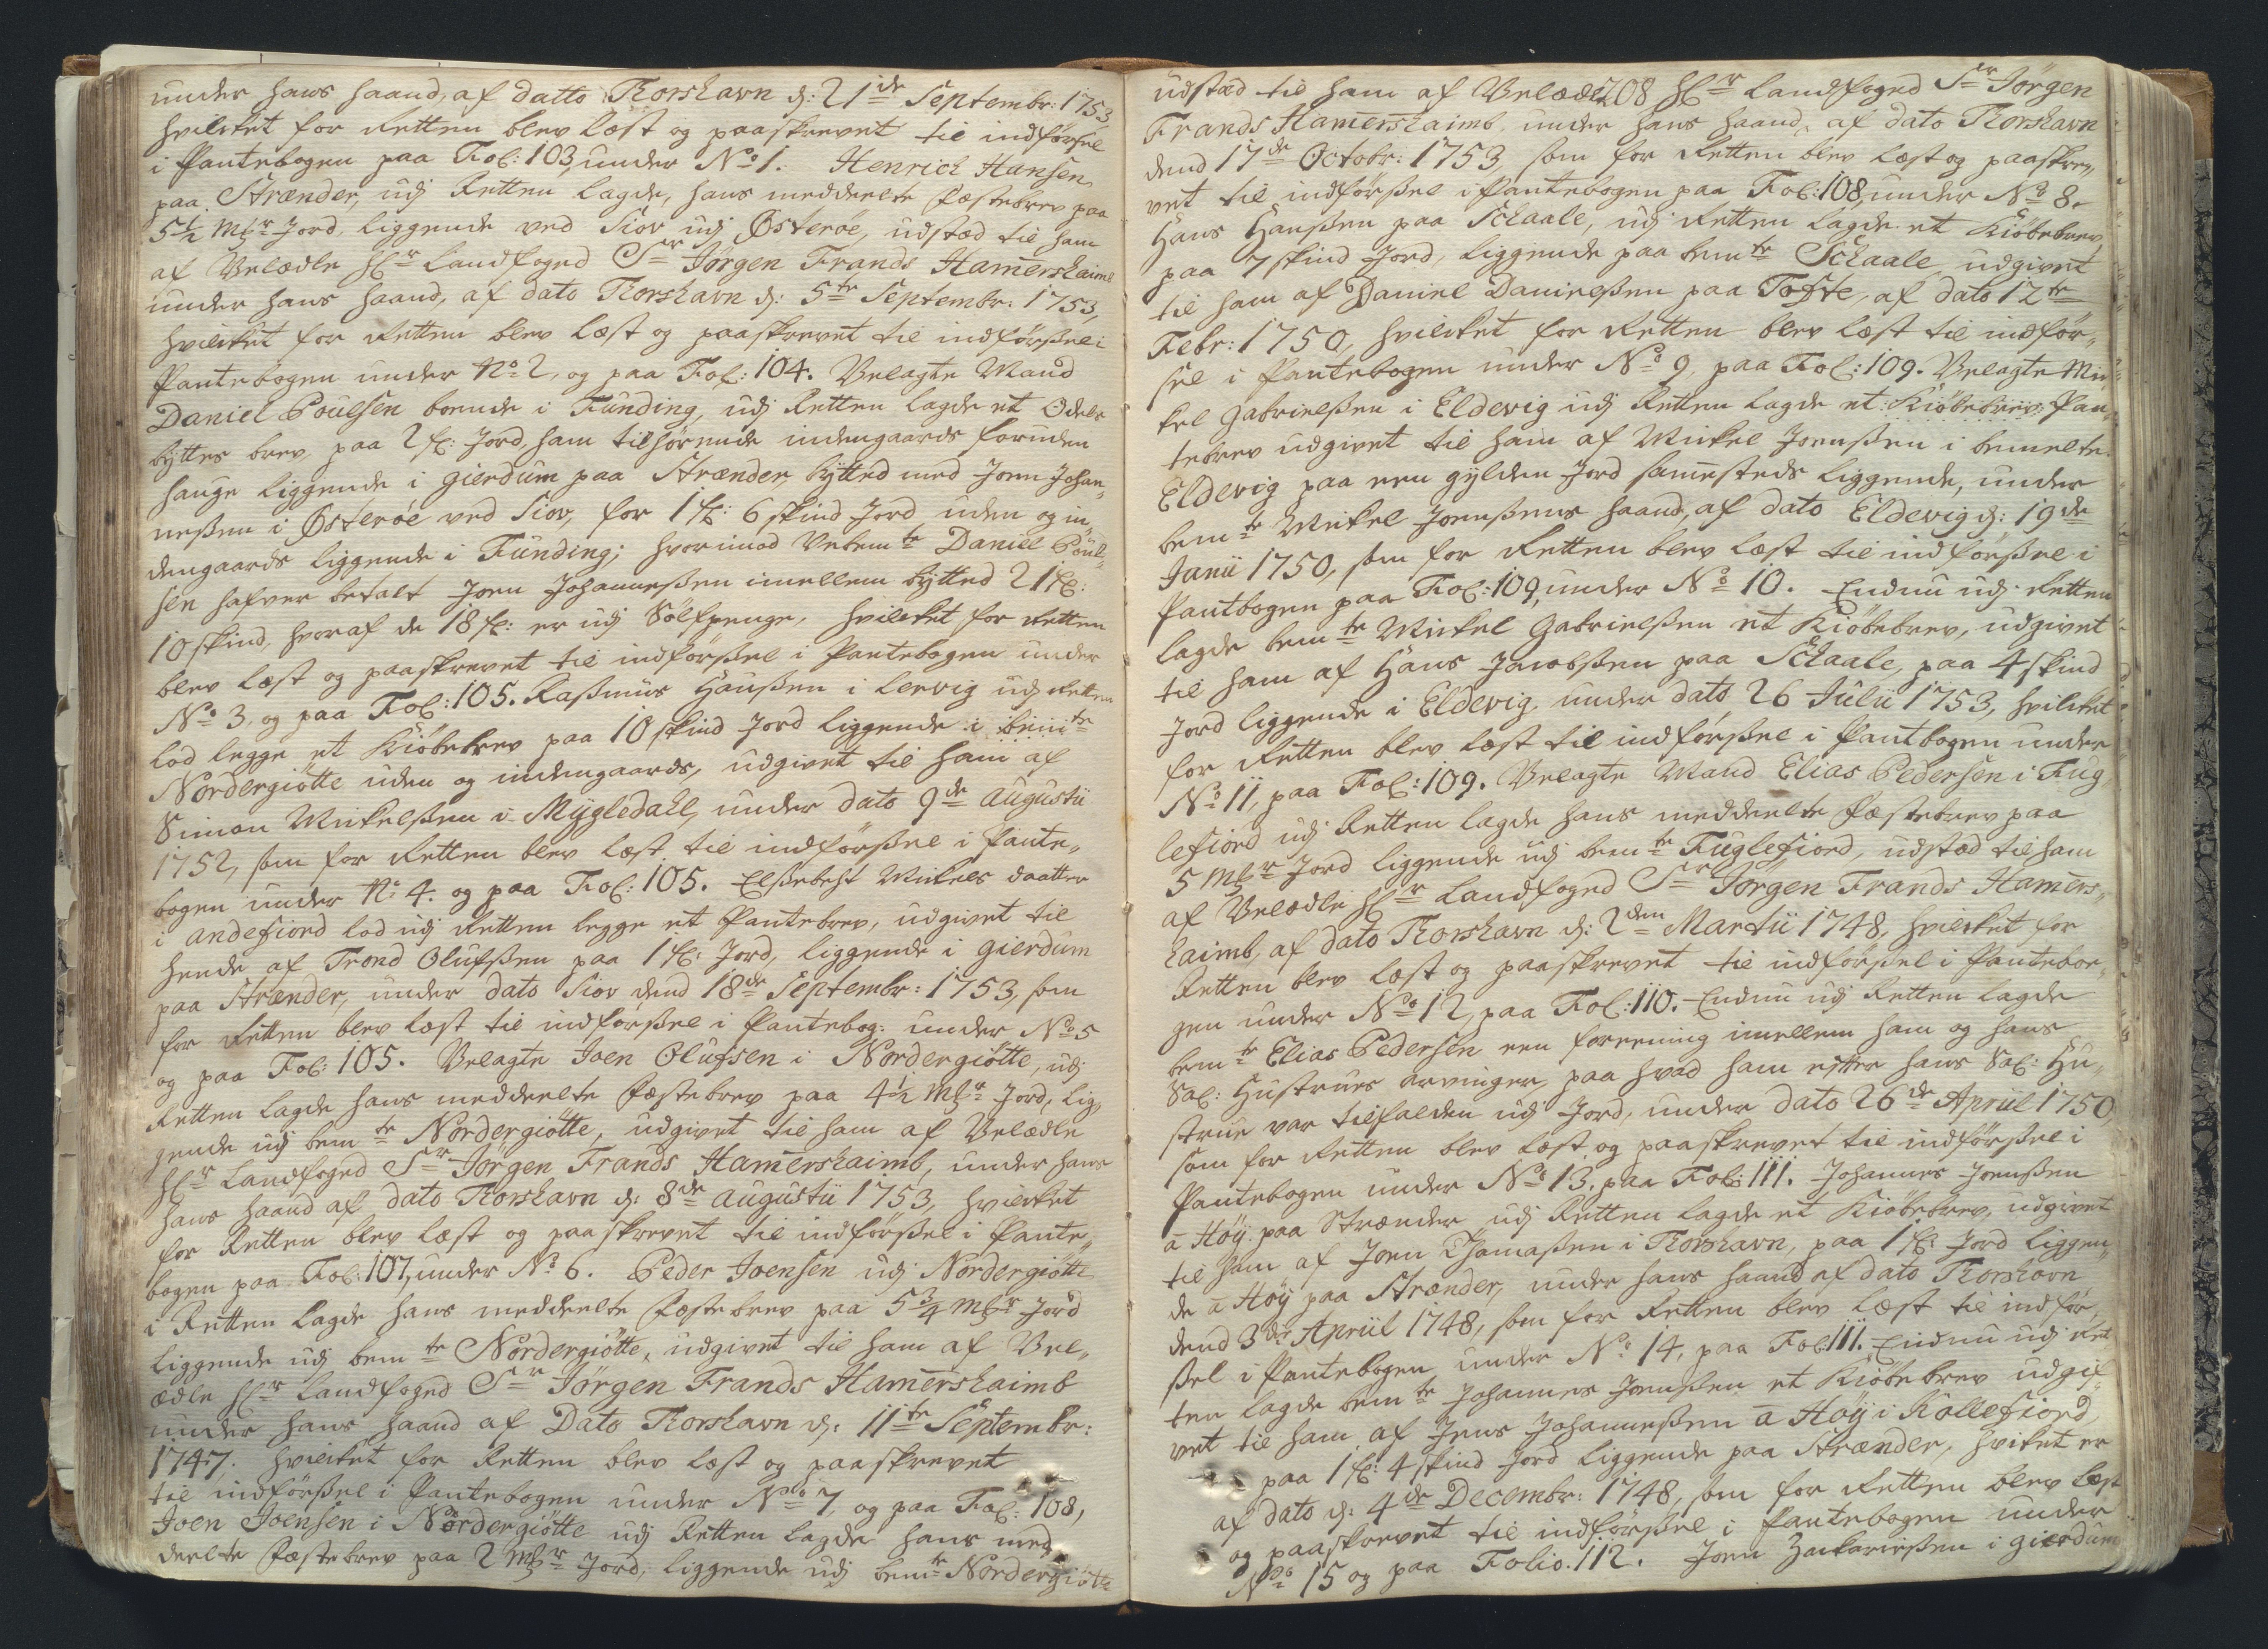 under hans haand, af datto Thorshavn d: 21de Septembr: 1753
hvilcket for Retten blev læst og paaskrevet til indførsel
i Pantebogen paa Fol: 103, under No 1. Henrich Hansen
paa Strænder, udj Retten lagde, hans meddeelte fæstebrev paa
5½ Mkr Jord, liggende ved Siov udj Østerøe, udstæd til ham
af Velædle Hr Landfoged Sr Jørgen Frands Hamershaimb
under hans haand, af dato Thorshavn d: 5te Septembr: 1753,
hvilcket for Retten blev læst og paaskrevet til indførsel i
Pantebogen under No 2, og paa Fol: 104. Velagte Mand
Daniel Poulsen boende i Funding, udj Retten lagde et Odels
byttes brev, paa 2 g: Jord, ham tilhørende indengaards foruden
hauge liggende i Gierdum paa Strænder, bytted med Joen Johan,,
neßen i Østerøe ved Siov, for 1 g: 6 skind Jord uden og in,,
dengaards liggende i Funding; hvorimod Vebemte Daniel Poul,,
sen hafver betalt Joen Johanneßen imellem bytted 21 g:
10 skind, hvoraf de 18 g: er udj Sølfpenge, hvilcket for Retten
blev læst og paaskrevet til indførßel i Pantebogen under
No 3, og paa Fol: 105. Raßmus Hanßen i Lervig udj Retten
lod legge et Kiøbebrev paa 10 skind Jord liggende i bemte
Nordergiøtte uden og indengaards, udgivet til ham af
Simon Mickelßen i Mygledahl, under dato 9de Augustii
1752, som for Retten blev læst til indførßel i Pante,,
bogen under No 4. og paa Fol: 105. Elßebeht Mickels daatter
i Andefiord lod udj Retten legge et Pantebrev, udgivet til
hende af Trond Olufßen paa 1 g: Jord, liggende i Gierdum
paa Strænder, under dato Siov dend 18de Septembr: 1753, som
for Retten blev læst til indførßel i Pantebog: under No 5
og paa Fol: 105. Velagte Joen Olufsen i Nordergiøtte, udj
Retten lagde hans meddeelte Fæstebrev paa 4½ Mkr Jord, lig,,
gende udj bemte Nordergiøtte, udgivet til ham af Velædle
Hr Landfoged Sr Jørgen Frands Hamershaimb, under hans
hans haand af dato Thorshavn d: 8de Augustii 1753, hvilcket
for Retten blev læst og paaskrevet til indførßel i Pante,,
bogen paa Fol: 107, under No 6. Peder Joensen udj Nordergiøtte
i Retten lagde hans meddeelte Fæstebrev paa 5¾ Mkr Jord
liggende udj bemte Nordergiøtte, udgivet til ham af Vel,,
ædle Hr Landfoged Sr Jørgen Frands Hamershaimb
under hans haand af Dato Thorshavn d: 11te Septembr:
1747, hvilcket for Retten blev læst og paaskrevet
til indførßel i Pantebogen under No 7, og paa Fol: 108,
Joen Joensen i Nordergiøtte udj Retten lagde hans med
deelte Fæstebrev paa 2 Mkr Jord, liggende udj bemte Nordergiøtte
udstæd til ham af Velædle Hr Landfoged Sr Jørgen
208
Frands Hamershaimb, under hans haand, af dato Thorshavn
dend 17de Octobr: 1753, som for Retten blev læst og paaskre,,
vet til indførßel i Pantebogen paa Fol: 108, under No 8.
Hans Hanßen paa Schaale, udj Retten lagde et Kiøbebrev,
paa 7 skind Jord, liggende paa bemte Schaale, udgivet
til ham af Daniel Danielßen paa Tofte, af dato 12te
Febr: 1750, hvilcket for Retten blev læst til indfør,,
sel i Pantebogen under No 9, paa Fol: 109. Velagte Mic,,
kel Gabrielßen i Eldevig udj Retten lagde et Kiøbebrev Pan,,
tebrev udgivet til ham af Mickel Joenßen i bemelte
Eldevig paa een gylden Jord sammesteds liggende, under
bemte Mickel Joenßens haand, af dato Eldevig d: 19de
Janii 1750, som for Retten blev læst til indførßel i
Pantbogen paa Fol: 109, under No 10. Endnu udj Retten
lagde bemte Mickel Gabrielßen et Kiøbebrev, udgivet
til ham af Hans Jacobßen paa Schaale, paa 4 skind
Jord liggende i Eldevig, under dato 26 Julii 1753, hvilcket
for Retten blev læst til indførßel i Pantbogen under
No 11, paa Fol: 109. Velagte Mand Elias Pedersen i Fug,,
lefiord udj Retten lagde hans meddeelte Fæstebrev paa
5 Mkr Jord liggende udj bemte Fuglefiord, udstæd til ham
af Velædle Hr Landfoged Sr Jørgen Frands Hamers,,
haimb, af dato Thorshavn d: 2den Martii 1748, hvilcket for
Retten blev læst og paaskrevet til indførßel i Panteboe,,
gen under No 12, paa Fol: 110. Endnu udj Retten lagde
bemte Elias Pedersen een foreening imellem ham og hans
Sal: Hustrues arvinger, paa hvad ham efter hans Sal: Hu,,
strue var tilfalden udj Jord, under dato 26de April 1750,
som for Retten blev læst, og paaskrevet til indførßel i
Pantebogen under No 13. paa Fol: 111. Johannes Joenßen
a Høy paa Strænder udj Retten lagde et Kiøbebrev, udgivet
til ham af Joen Thomaßen i Thorshavn, paa 1 g: Jord liggen,,
de a Høy paa Strænder, under hans haand af dato Thorshavn
dend 3die April 1748, som for Retten blev læst til indfør,,
ßel i Pantebogen under No 14, paa Fol: 111. Endnu udj Ret
ten lagde bemte Johannes Joenßen et Kiøbebrev udgif,,
vet til ham af Jens Johanneßen a Høy i Kollefiord,
paa 1 g: 4 skind Jord liggende paa Strænder, hvilcket er
af dato d: 4de Decembr: 1748, som for Retten blev læst
og paaskrevet til indførßel i Pantebogen under
No 15 og paa Folio. 112. Joen Zacharießen i Gierdum